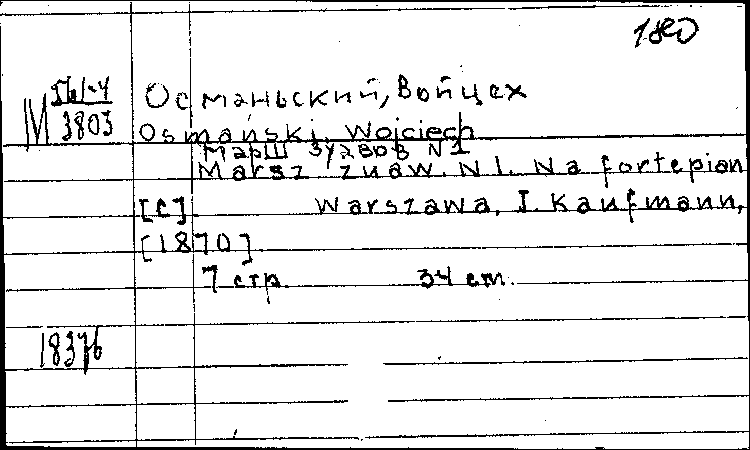 180
Османьский, Войцех
М 3803
Osmański, Wojciech
Марш зуавов N1
Marsz zuaw. N1. Na fortepian
[C] Warszawa, I. Kaufmann,
[1870]
7 стр. 34 cm.
18376